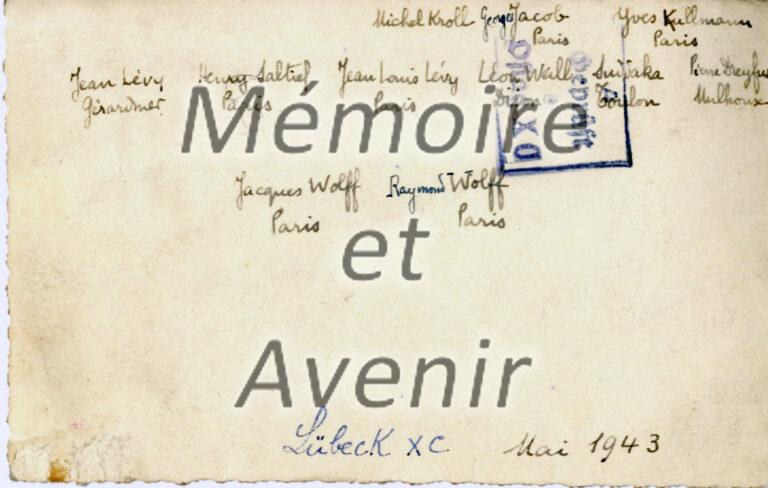 Michel Kroll Georges Jacob Yves Kullmann
Paris Paris
Jean Lévy Henry Saltiel Jean Louis Lévy Léon Wall Pierre Dreyfus
Gérardmer Paris Paris Toulon Mulhouse
Mémoire
Geprüft
Oflag XC
Jacques Wolff Raymond Wolff
Paris Paris
et
Avenir
Lübeck XC Mai 1943